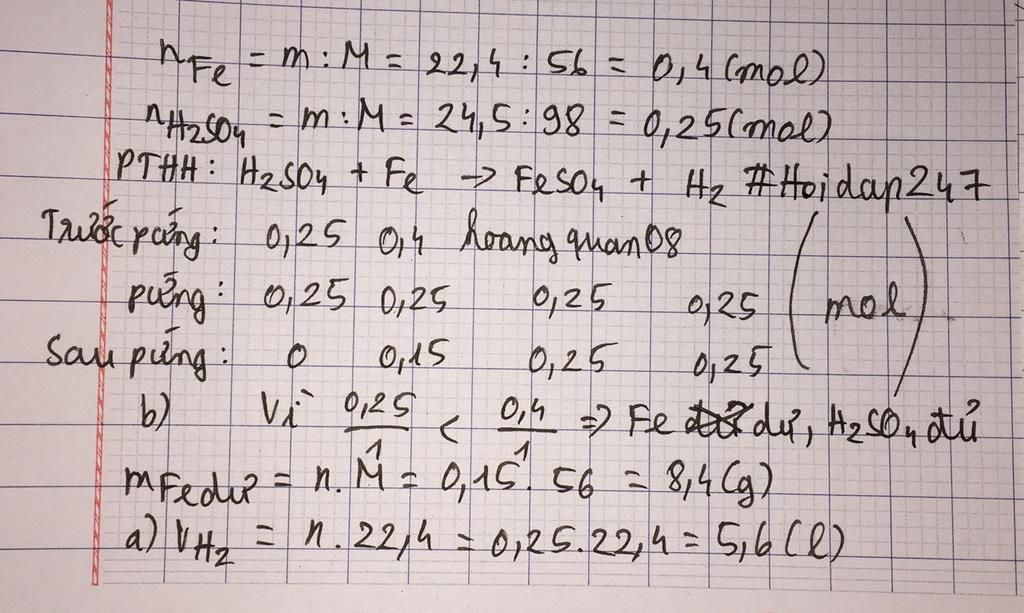 nFe = m : M = 22,4 : 56 = 0,4 (mol)
nH2SO4 = m : M = 24,5 : 98 = 0,25 (mol)
PTHH: H2SO4 + Fe → FeSO4 + H2 #Hoidap247
Trước pứng: 0,25 0,4 hoangquan08
pứng: 0,25 0,25 0,25 0,25 (mol)
Sau pứng: 0 0,15 0,25 0,25
b) Vì 0,25/1 < 0,4/1 => Fe dư, H2SO4 đủ
mFe dư = n.M = 0,15.56 = 8,4 (g)
a) VH2 = n.22,4 = 0,25.22,4 = 5,6 (l)